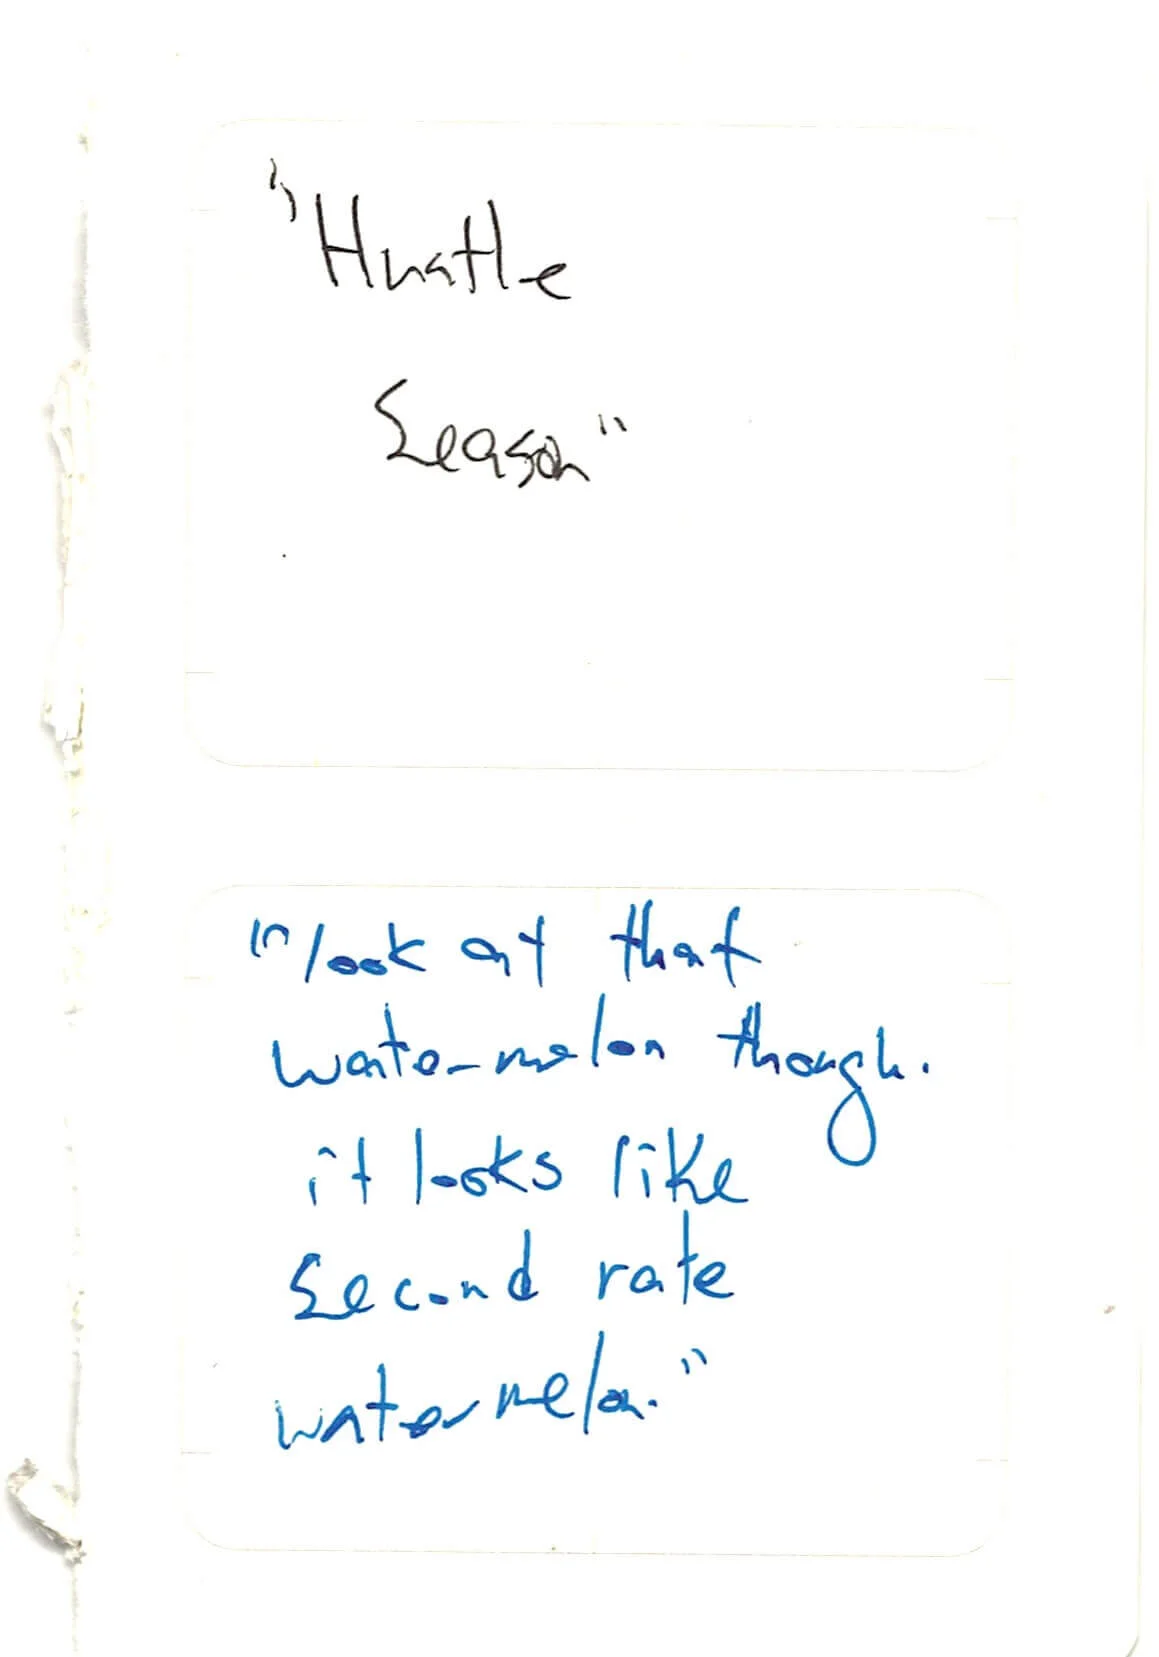 "Hustle
Season"
"look at that
watermelon though.
it looks like
second rate
watermelon."